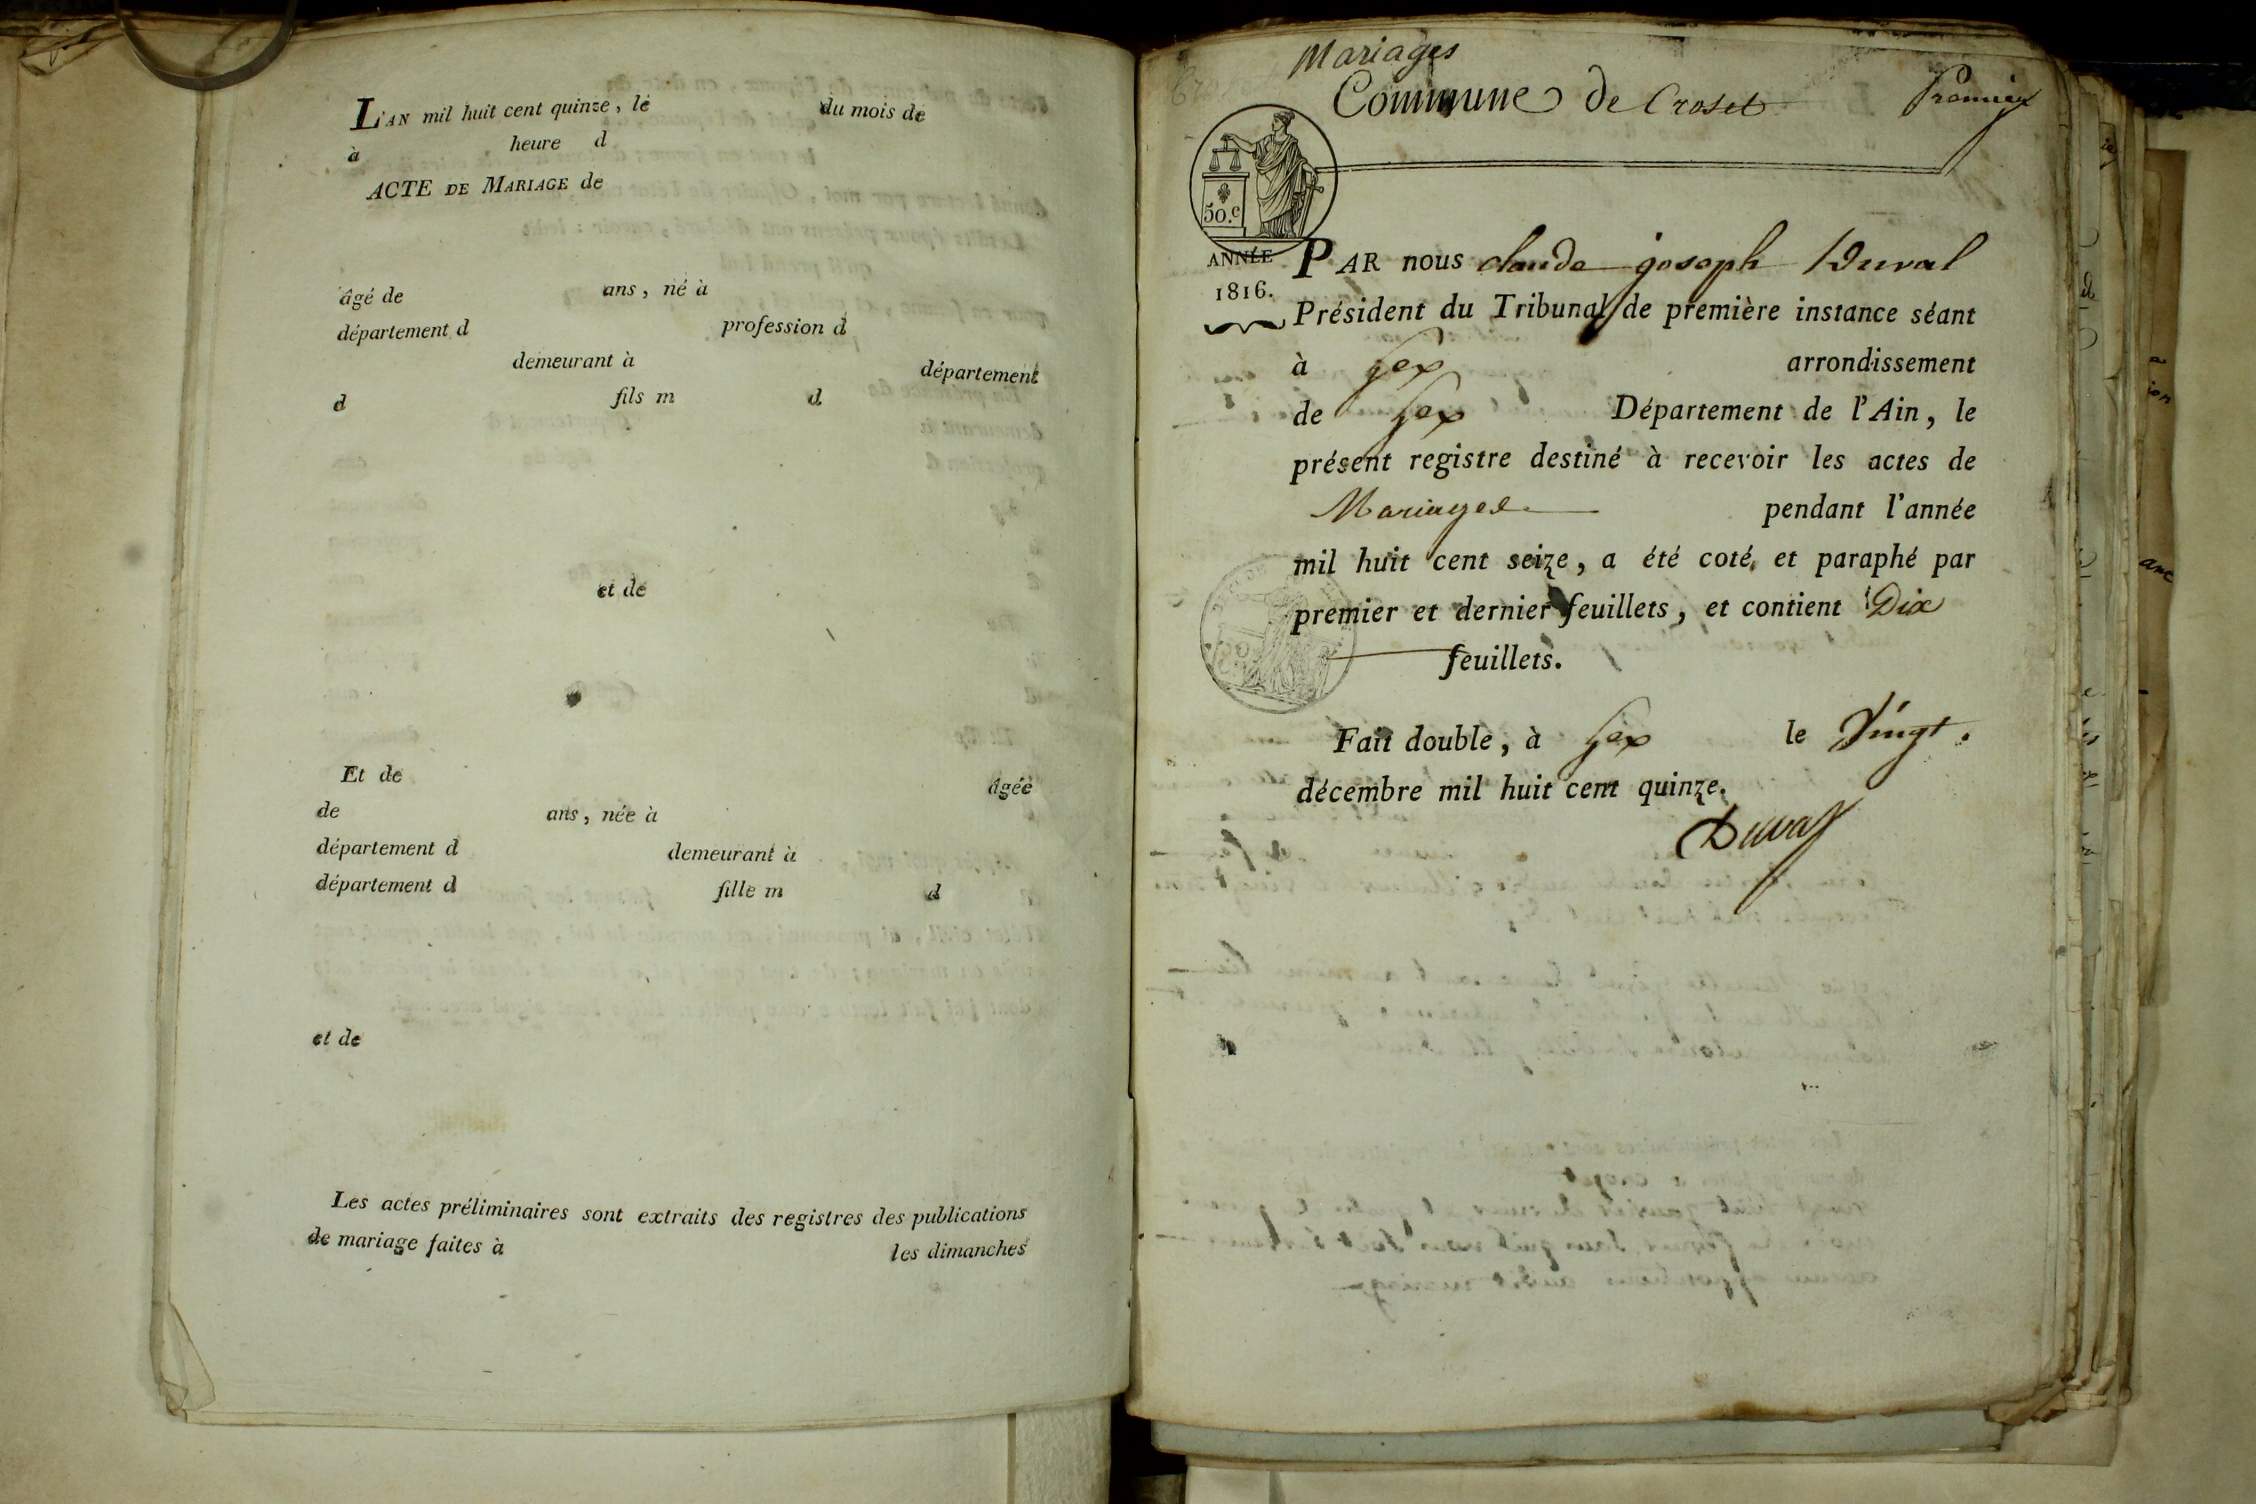 L'AN mil huit cent quinze, le du mois de
à heure d
ACTE DE MARIAGE de
âgé de ans, né à
département d profession d
demeurant à département
d fils m d
et de
Et de âgée
de ans, née à
département d demeurant à
département d fille m d
et de
Les actes préliminaires sont extraits des registres des publications
de mariage faites à les dimanches
Mariages
Commune de Croset
Premier
50.c
ANNÉE
1816.
PAR nous claude joseph Duval
Président du Tribunal de première instance séant
à Gex arrondissement
de Gex Département de l'Ain, le
présent registre destiné à recevoir les actes de
Mariages pendant l'année
mil huit cent seize, a été coté et paraphé par
premier et dernier feuillets, et contient Dix
feuillets.
Fait double, à Gex le Vingt.
décembre mil huit cent quinze.
Duval